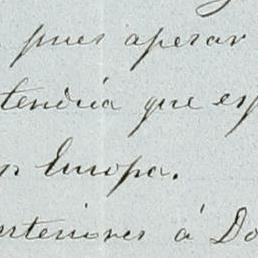 pues apesar
tendria que es
Europa.
anteriores á Do